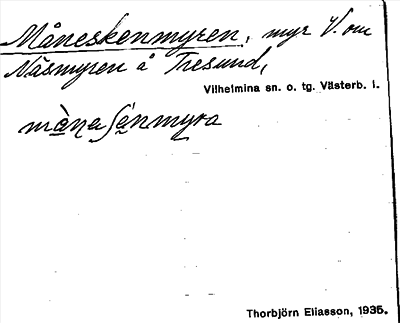 Måneskenmyren, myr V. om
Näsmyren å Tresund,
Vilhelmina sn. o. tg. Västerb. l.
mànaʃénmyra
Thorbjörn Eliasson, 1935.